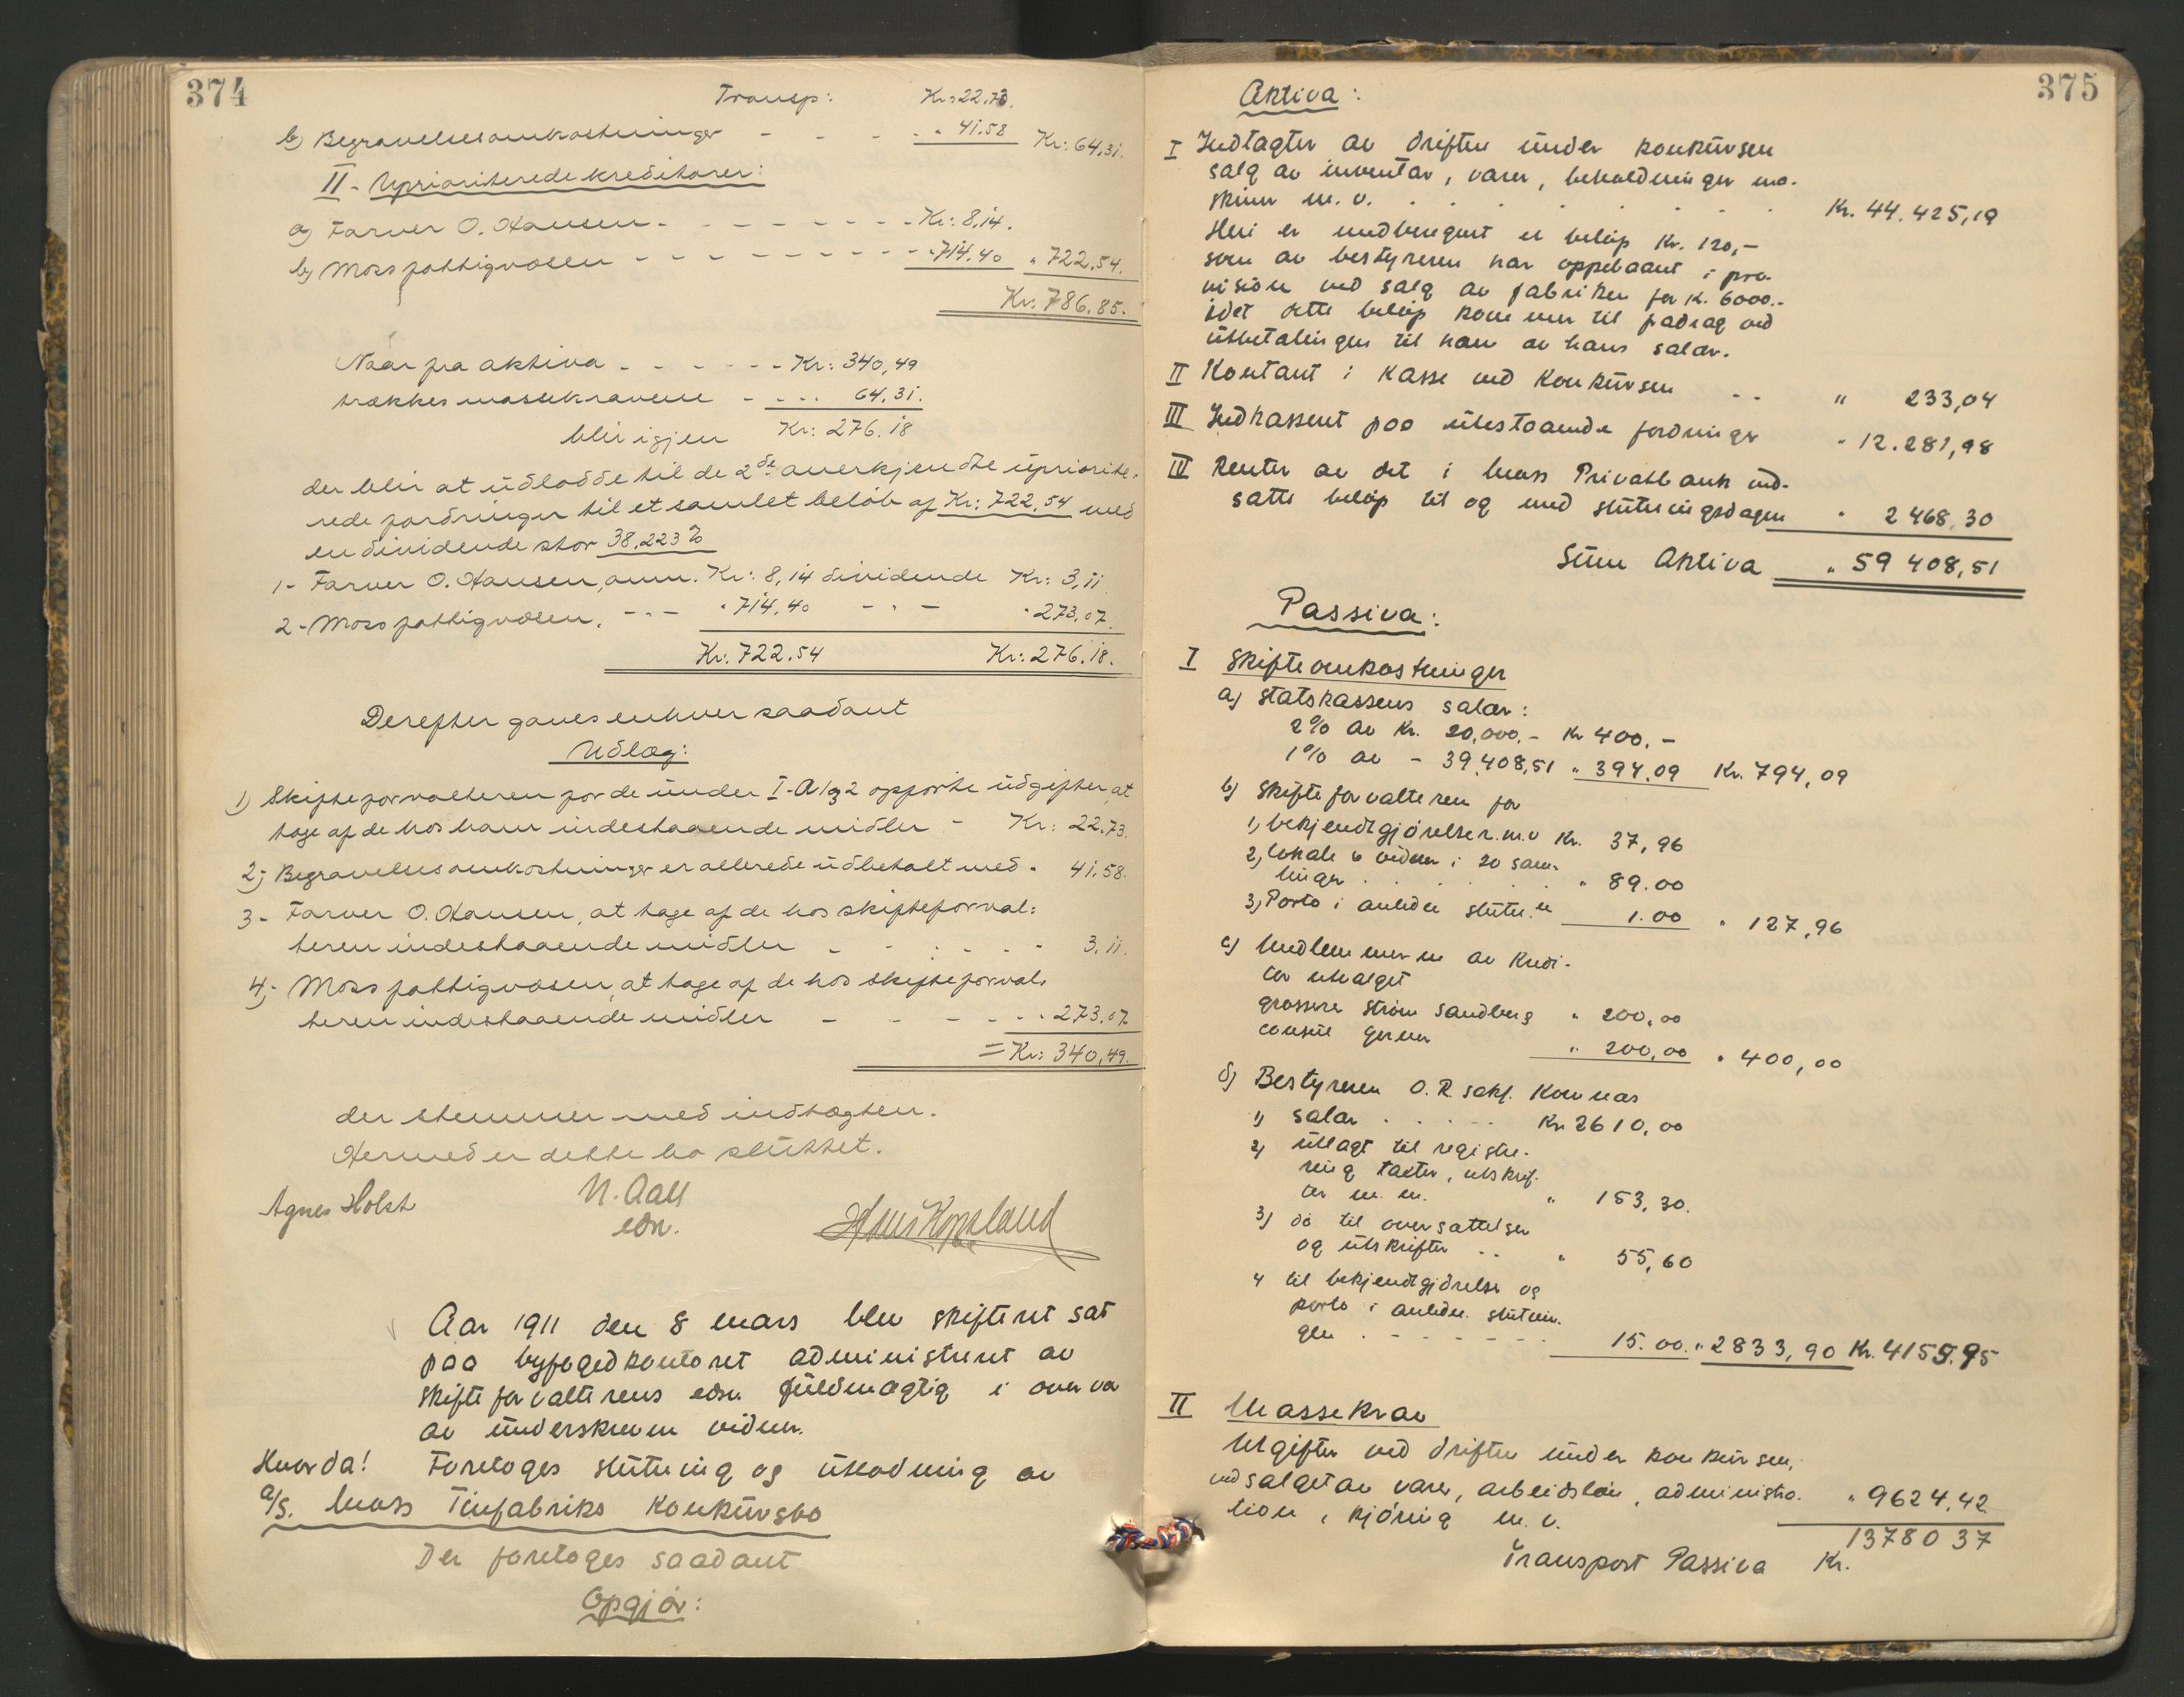 374
Transp: Kr: 22.73.
b) Begravelsesomkostninger - - - - " 41.58 Kr: 64,31.
II - Uprioriterede kreditorer:
a) Farver O. Hansen - - - - - - - Kr: 8,14.
b) Moss fattigvæsen - - - - - - - - - " 714.40 " 722.54.
Kr: 786.85.
Naar fra aktiva - - - - - - Kr: 340,49
trækkes massekravene - - . . 64.31.
blir igjen Kr: 276.18
der blir at udlodde til de 2de anerkjendte upriorite-
rede fordringer til et samlet beløb af Kr: 722,54 med
en dividende stor 38.223%
1- Farver O. Hansen, anm. Kr: 8,14 dividende Kr: 3,11
2- Moss fattigvæsen. - " - " 714.40 - " - " 273.07.
Kr: 722.54 Kr: 276.18.
Derefter gaves enhver saadant
Udlæg:
1) Skifteforvalteren for de under I-A 1 og 2 opførte udgifter, at
tage af de hos ham indestaaende midler - Kr: 22.73.
2; Begravelsesomkostninger er allerede udbetalt med " 41.58.
3 - Farver O. Hansen, at tage af de hos skifteforval:
teren indestaaende midler - - - - - - 3.11.
4; Moss fattigvæsen, at tage af de hos skifteforval.
teren indestaaende midler - - - - - " 273.07
= Kr: 340,49.
der stemmer med indtægten.
Hermed er dette bo sluttet.
Agnes Holst N. Aall Hans Kopsland
edsv.
Aar 1911 den 8 mars blev skifteret sat
paa byfogedkontoret administreret av
skifteforvalterens edsv. fuldmægtig i overvær
av underskreven vidner.
Hvorda! Foretoges slutning og utlodning av
a/s. Moss Tinfabriks Konkursbo
Der foretoges saadant
Opgjør:
375
Aktiva:
I Indtægter av driften under konkursen
salg av inventar, varer, beholdninger ma-
skiner m. v. . . . . . . . Kr. 44.425,19
Heri er medberegnet et beløp Kr. 120,-
som av bestyreren har oppebaaret i pro-
vision ved salg av fabriken for K. 6000.-
idet dette beløp kommer til fradrag ved
utbetalingen til ham av hans salær.
II Kontant i Kasse ved Konkursen . . " 233,04
III Indkassert paa utestaaende fordringer " 12.281,98
IV Renter av det i Moss Privatbank ind-
satte beløp til og med slutningsdagen " 2468,30
Sum Aktiva " 59 408,51
Passiva:
I Skifteomkostninger
a) Statskassens salær:
2% av Kr. 20,000.- Kr 400.-
1% av - 39,408,51 " 394.09 Kr. 794,09
b) Skifteforvalteren for
1, bekjendtgjørelser m.v Kr. 37,96
2, lokale & vidner i 20 sam-
linger . . . . . " 89.00
3, Porto i anledn slutn.en 1.00 " 127,96
c) Medlemmerne av kredi-
tor utvalget
grosserer Strøm Sandberg " 200,00
consul Gerner " 200,00 " 400,00
d) Bestyreren O.R sakf. Konnas
1) salær . . . . . Kr. 2610,00
2) utlagt til registre-
ring takster, utskrif-
ter m. m. " 153,30.
3) do til oversættelser
og utskrifter . . " 55,60
4 til bekjendtgjørelse og
porto i anledn. slutnin-
gen . - - - - - - 15.00. " 2833,90 Kr. 4155.95
II Massekrav
Utgifter ved driften under konkursen,
ved salget av varer, arbeidsløn, administra- " 9624,42
tion, kjøring m. v. 13780 37
Transport Passiva Kr.